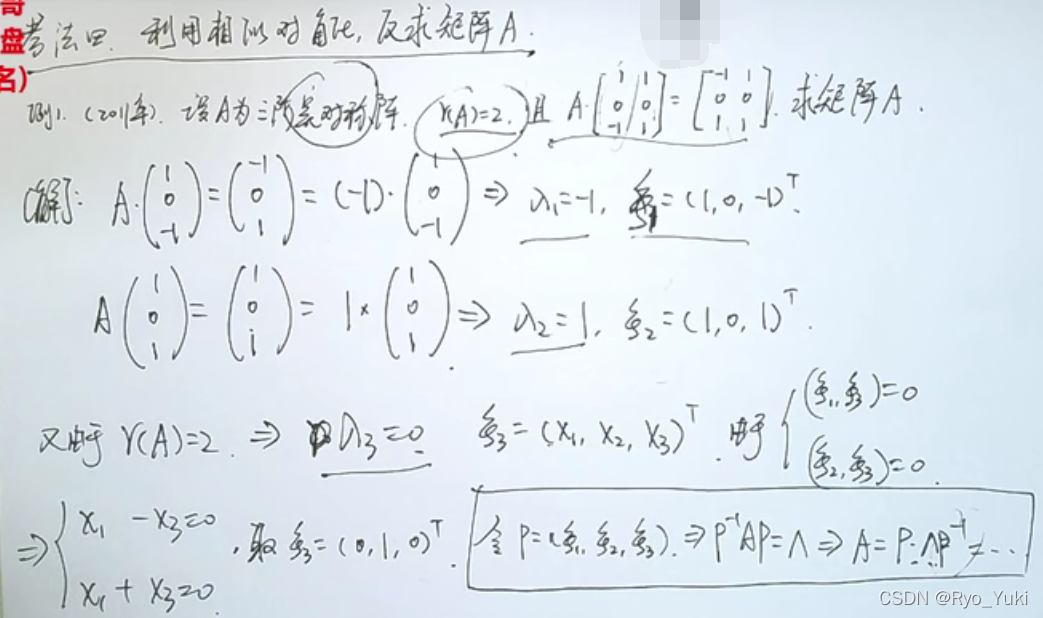 哥
盘
名)
考法四. 利用相似对角化, 反求矩阵A.
例1. (2011年). 设A为三阶实对称阵. r(A)=2. 且 A·[1 1; 0 0; -1 1] = [-1 1; 0 0; 1 1]. 求矩阵A.
[解]: A·(1 0 -1) = (-1 0 1) = (-1)·(1 0 -1) ⇒ λ₁=-1, ξ₁=(1,0,-1)ᵀ.
A(1 0 1) = (1 0 1) = 1×(1 0 1) ⇒ λ₂=1, ξ₂=(1,0,1)ᵀ.
又由于 r(A)=2. ⇒ λ₃=0. ξ₃=(x₁, x₂, x₃)ᵀ. 由于 { (ξ₁,ξ₃)=0
(ξ₂,ξ₃)=0.
⇒ { x₁ -x₃=0
x₁+x₃=0. , 取 ξ₃=(0,1,0)ᵀ. 令 P=(ξ₁,ξ₂,ξ₃). ⇒ P⁻¹AP=Λ ⇒ A=P·ΛP⁻¹=...
CSDN @Ryo_Yuki